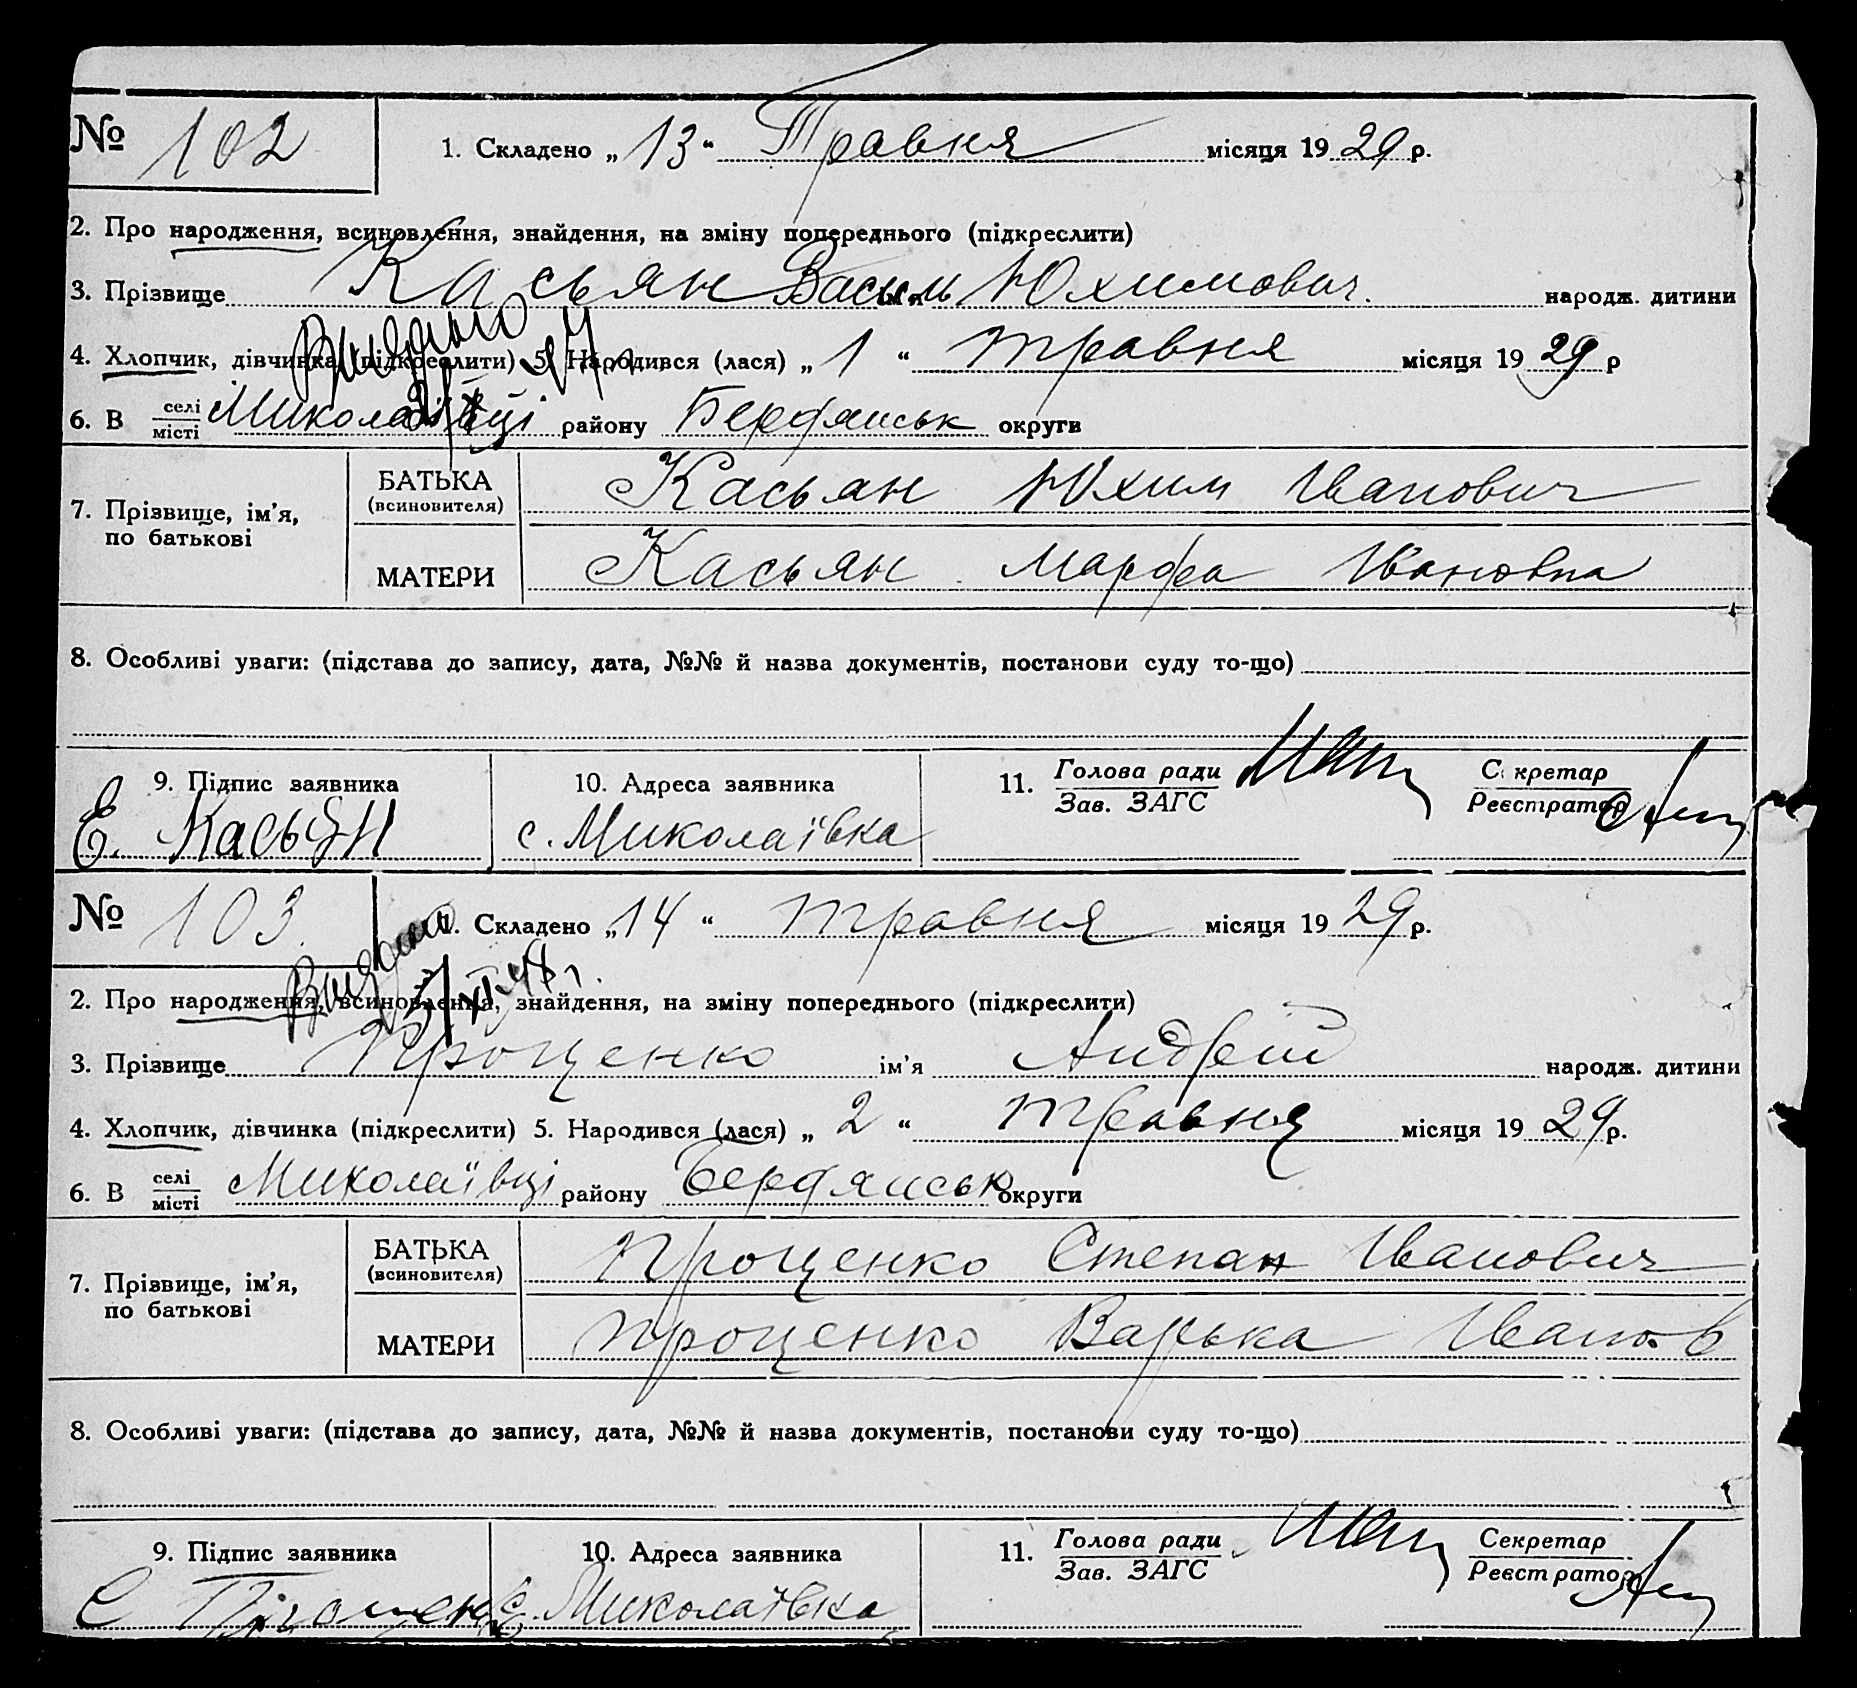 № 102 1. Складено „13“ Травня місяця 1929 р.
2. Про народження, всиновлення, знайдення, на зміну попереднього (підкреслити)
3. Прізвище Касьян Василь Юхимович. народж. дитини
4. Хлопчик, дівчинка (підкреслити) 5. Народився (лася) „ 1 “ травня місяця 1929 р
6. В селі/місті Миколаївці району Бердянськ округи
7. Прізвище, ім’я, по батькові
БАТЬКА (всиновителя) Касьян Юхим Іванович
МАТЕРИ Касьян Марфа Івановна
8. Особливі уваги: (підстава до запису, дата, №№ й назва документів, постанови суду то-що)
9. Підпис заявника 10. Адреса заявника 11. Голова ради/Зав. ЗАГС Секретар/Реєстратор
Е. Касьян с. Миколаївка
№ 103. 1. Складено „14“ травня місяця 1929 р.
2. Про народження, всиновлення, знайдення, на зміну попереднього (підкреслити)
3. Прізвище Проценко ім’я Андрей народж. дитини
4. Хлопчик, дівчинка (підкреслити) 5. Народився (лася) „ 2 “ травня місяця 1929 р.
6. В селі/місті Миколаївці району Бердянськ округи
7. Прізвище, ім’я, по батькові
БАТЬКА (всиновителя) Проценко Степан Іванович
МАТЕРИ Проценко Варька Іванов
8. Особливі уваги: (підстава до запису, дата, №№ й назва документів, постанови суду то-що)
9. Підпис заявника 10. Адреса заявника 11. Голова ради/Зав. ЗАГС Секретар/Реєстратор
с. Миколаївка